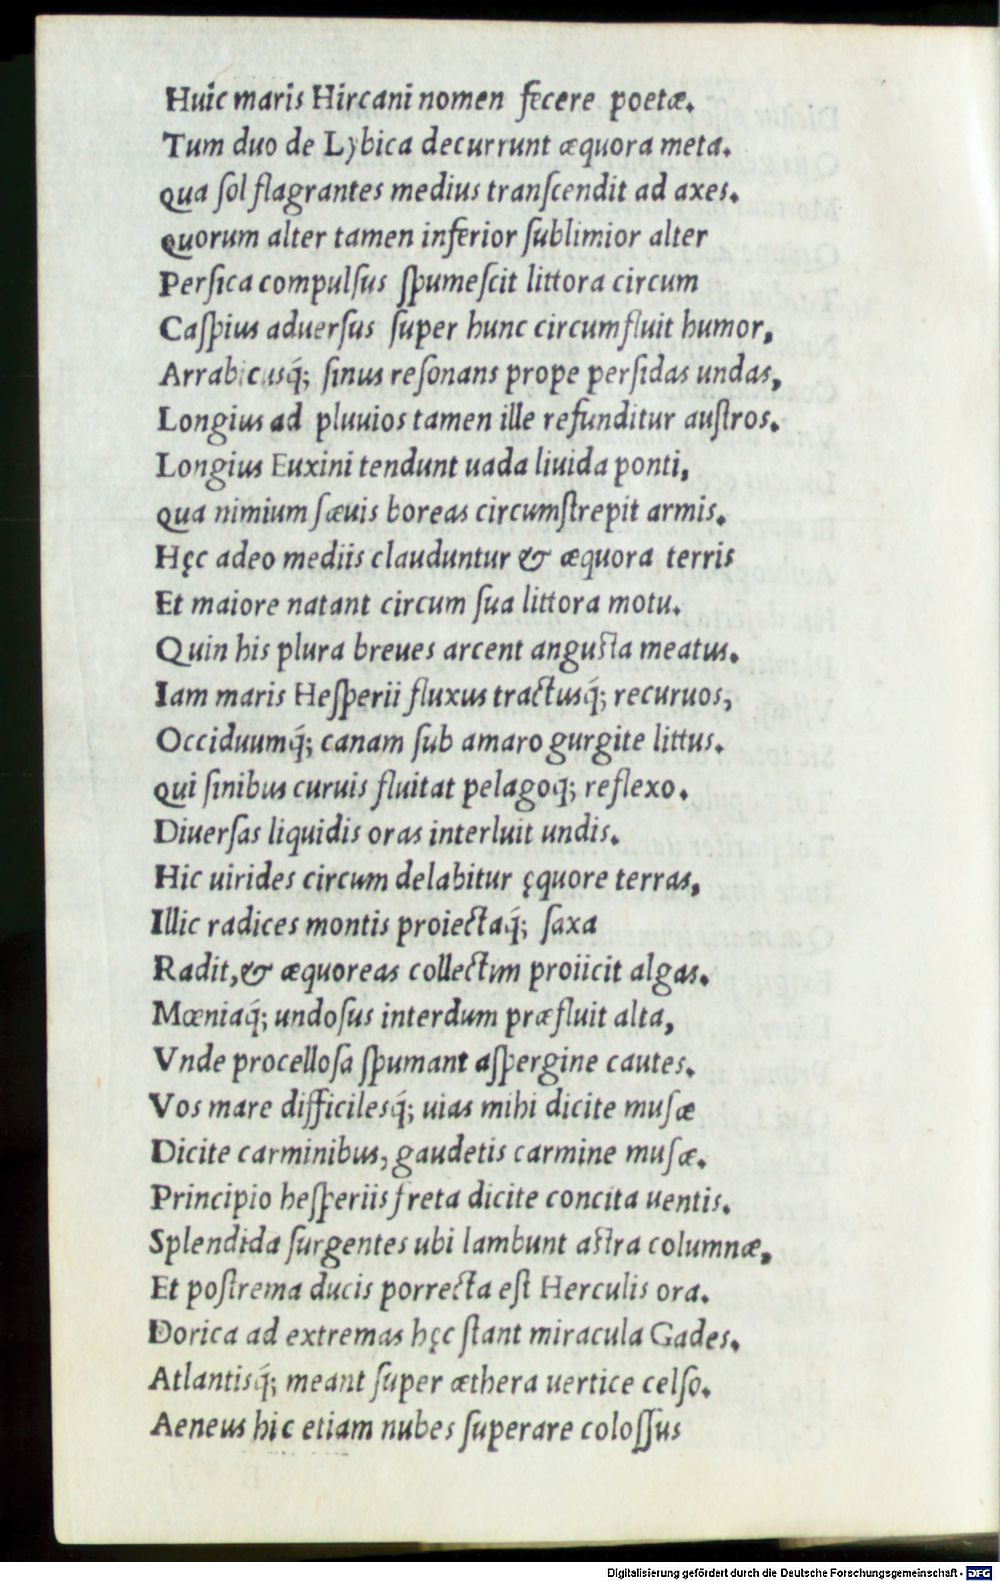 Huic maris Hircani nomen fecere poetæ.
Tum duo de Lybica decurrunt æquora meta.
qua ſol flagrantes medius tranſcendit ad axes.
quorum alter tamen inferior ſublimior alter
Perſica compulſus ſpumeſcit littora circum
Caſpius aduerſus ſuper hunc circumfluit humor,
Arrabicusq́; ſinus reſonans prope perſidas undas,
Longius ad pluuios tamen ille refunditur auſtros.
Longius Euxini tendunt uada liuida ponti,
qua nimium ſæuis boreas circumſtrepit armis.
Hęc adeo mediis clauduntur & æquora terris
Et maiore natant circum ſua littora motu.
Quin his plura breues arcent anguſta meatus.
Iam maris Heſperii fluxus tractusq́; recuruos,
Occiduumq́; canam ſub amaro gurgite littus.
qui ſinibus curuis fluitat pelagoq́; reflexo.
Diuerſas liquidis oras interluit undis.
Hic uirides circum delabitur ęquore terras,
Illic radices montis proiectaq́; ſaxa
Radit,& æquoreas collectim proiicit algas.
Mœniaq́; undoſus interdum præfluit alta,
Vnde procelloſa ſpumant aſpergine cautes.
Vos mare difficilesq́; uias mihi dicite muſæ
Dicite carminibus, gaudetis carmine muſæ.
Principio heſperiis freta dicite concita uentis.
Splendida ſurgentes ubi lambunt aſtra columnæ,
Et poſtrema ducis porrecta eſt Herculis ora.
Dorica ad extremas hęc ſtant miracula Gades.
Atlantisq́; meant ſuper æthera uertice celſo.
Aeneus hic etiam nubes ſuperare coloſſus
Digitalisierung gefördert durch die Deutsche Forschungsgemeinschaft - DFG